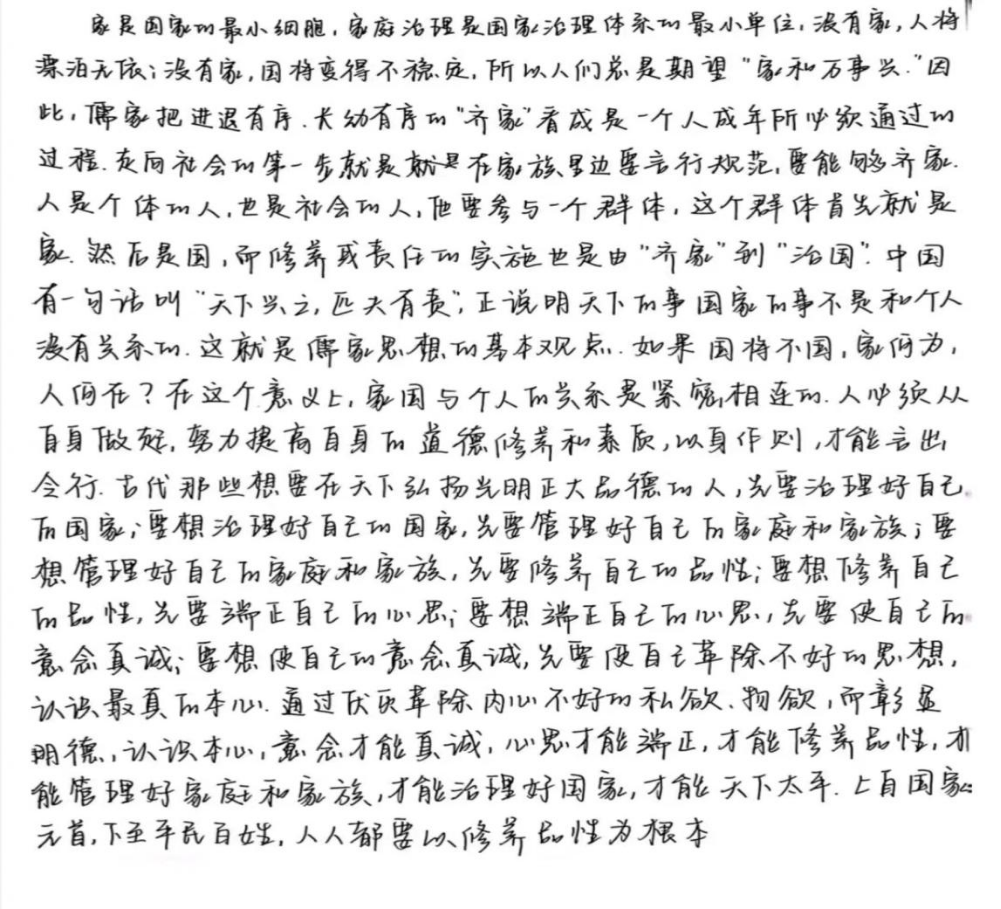 家是国家的最小细胞，家庭治理是国家治理体系的最小单位，没有家，人将
漂泊无依；没有家，国将变得不稳定，所以人们总是期望“家和万事兴。”因
此，儒家把进退有序、长幼有序的“齐家”看成是一个人成年所必须通过的
过程。走向社会的第一步就是就是在家族里边要言行规范，要能够齐家。
人是个体的人，也是社会的人，他要参与一个群体，这个群体首先就是
家。然后是国，而修养或责任的实施也是由“齐家”到“治国”。中国
有一句话叫“天下兴之，匹夫有责”，正说明天下的事国家的事不是和个人
没有关系的。这就是儒家思想的基本观点。如果国将不国，家何为，
人何在？在这个意义上，家国与个人的关系是紧密相连的。人必须从
自身做起，努力提高自身的道德修养和素质，以身作则，才能言出
令行。古代那些想要在天下弘扬光明正大品德的人，先要治理好自己
的国家；要想治理好自己的国家，先要管理好自己的家庭和家族；要
想管理好自己的家庭和家族，先要修养自己的品性；要想修养自己
的品性，先要端正自己的心思；要想端正自己的心思，先要使自己的
意念真诚；要想使自己的意念真诚，先要使自己革除不好的思想，
认识最真的本心。通过反反革除内心不好的私欲、物欲，而彰显
明德，认识本心，意念才能真诚，心思才能端正，才能修养品性，才
能管理好家庭和家族，才能治理好国家，才能天下太平。上自国家
元首，下至平民百姓，人人都要以修养品性为根本